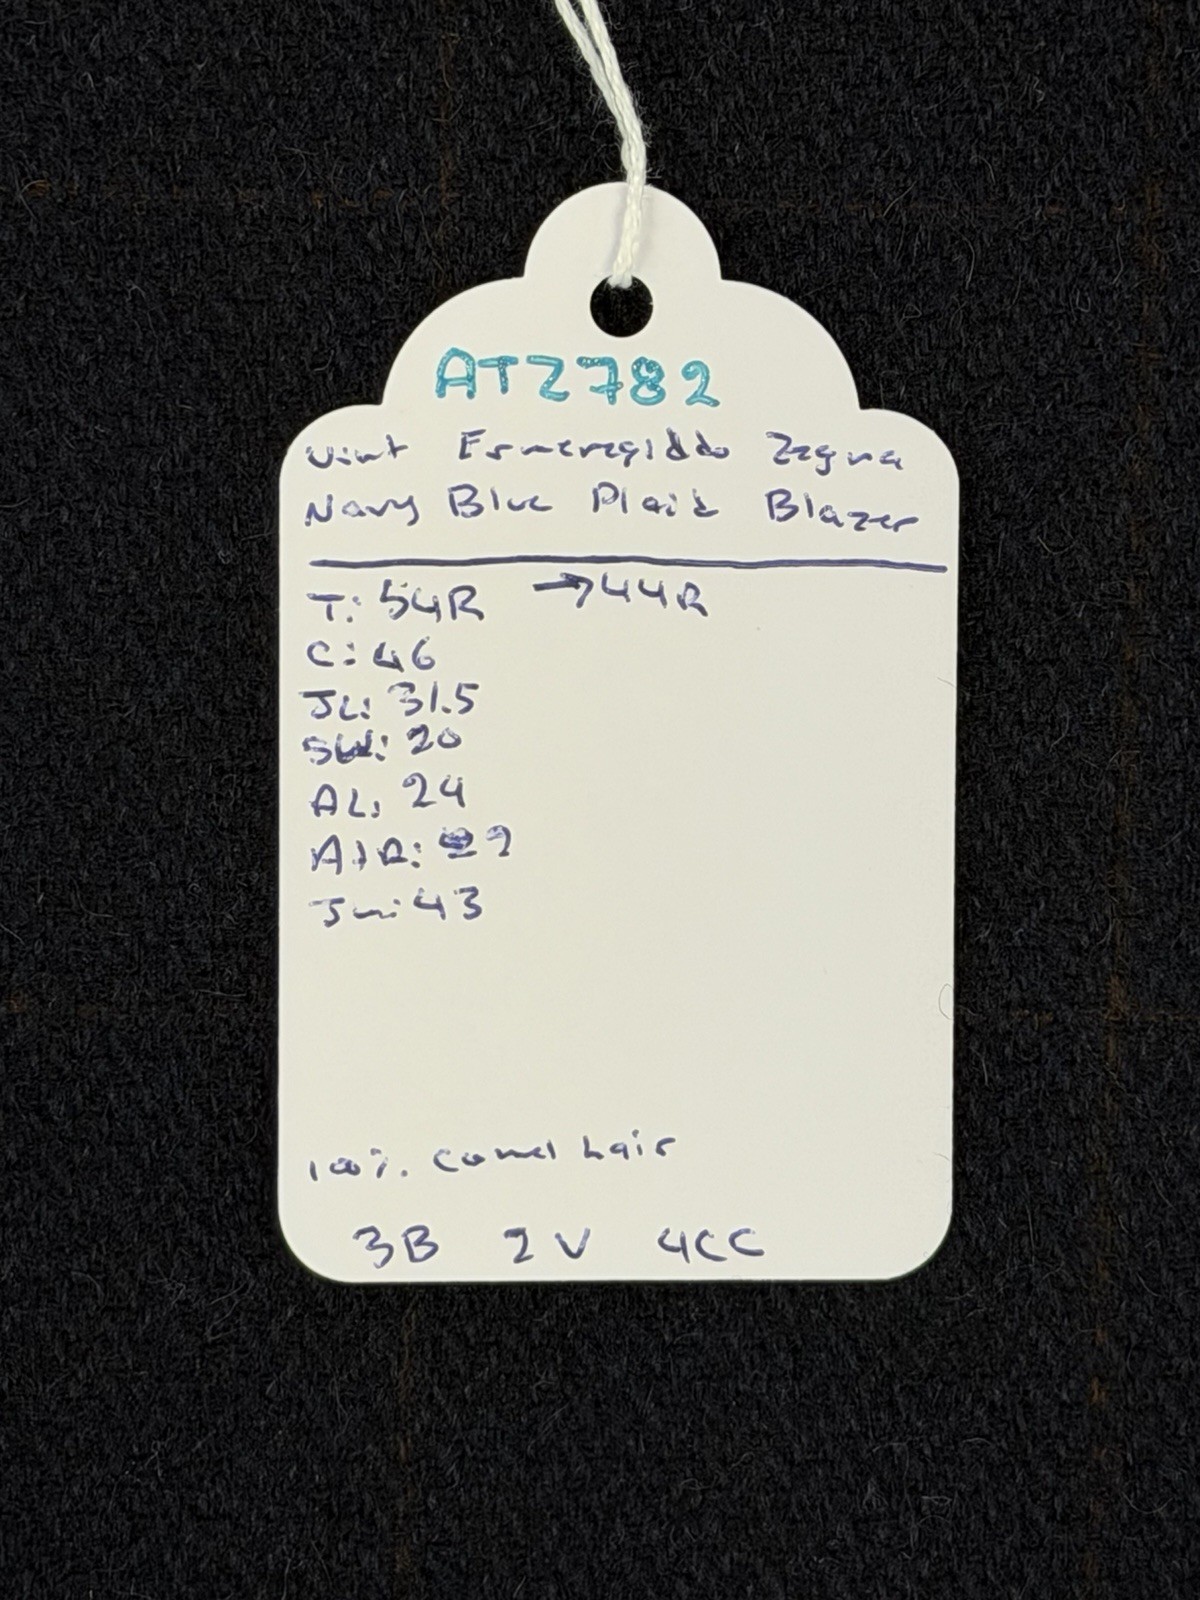 ATZ782
Vint Esmeregilddo Zegna
Navy Blue Plaid Blazer
T: 54R → 44R
C: 46
JL: 31.5
SW: 20
AL: 24
2
43
100%. Camel hair
3B 2V 4CC